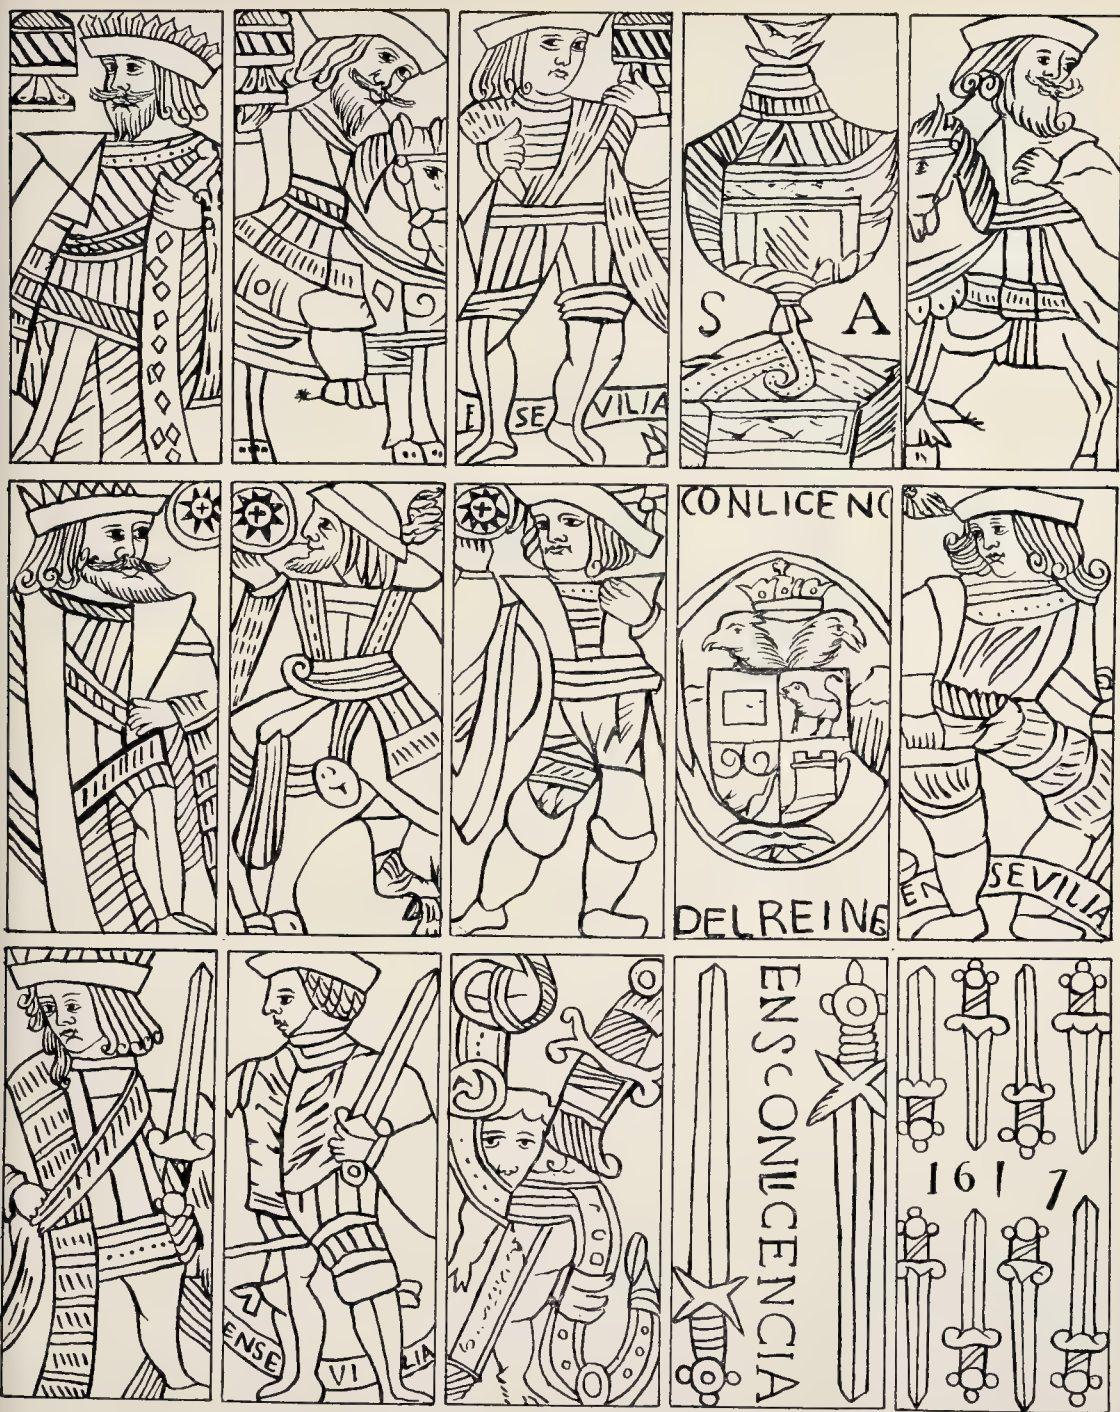 E SE VILIA
S A
CONLICENC
DELREINE
EN SEVILIA
ENSE VI LIA
ENSCONLICENCIA
1617